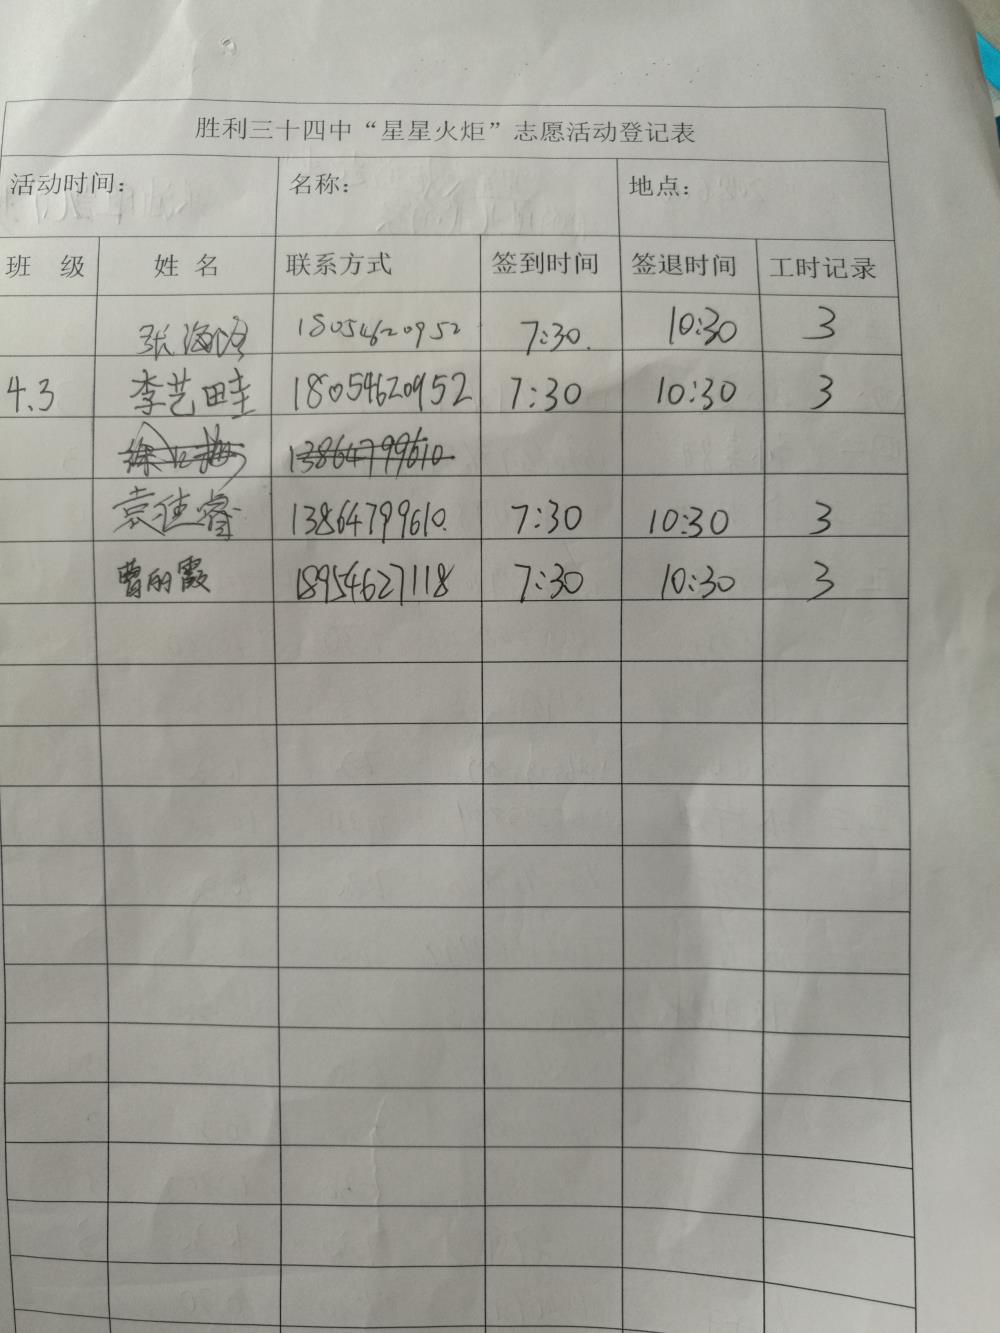 胜利三十四中“星星火炬”志愿活动登记表
活动时间： 名称： 地点：
班 级 姓 名 联系方式 签到时间 签退时间 工时记录
张海玲 18054620952 7:30. 10:30 3
4.3 李艺畦 18054620952 7:30 10:30 3
13864799610
袁佳睿 13864799610. 7:30 10:30 3
曹丽霞 18954627118 7:30 10:30 3